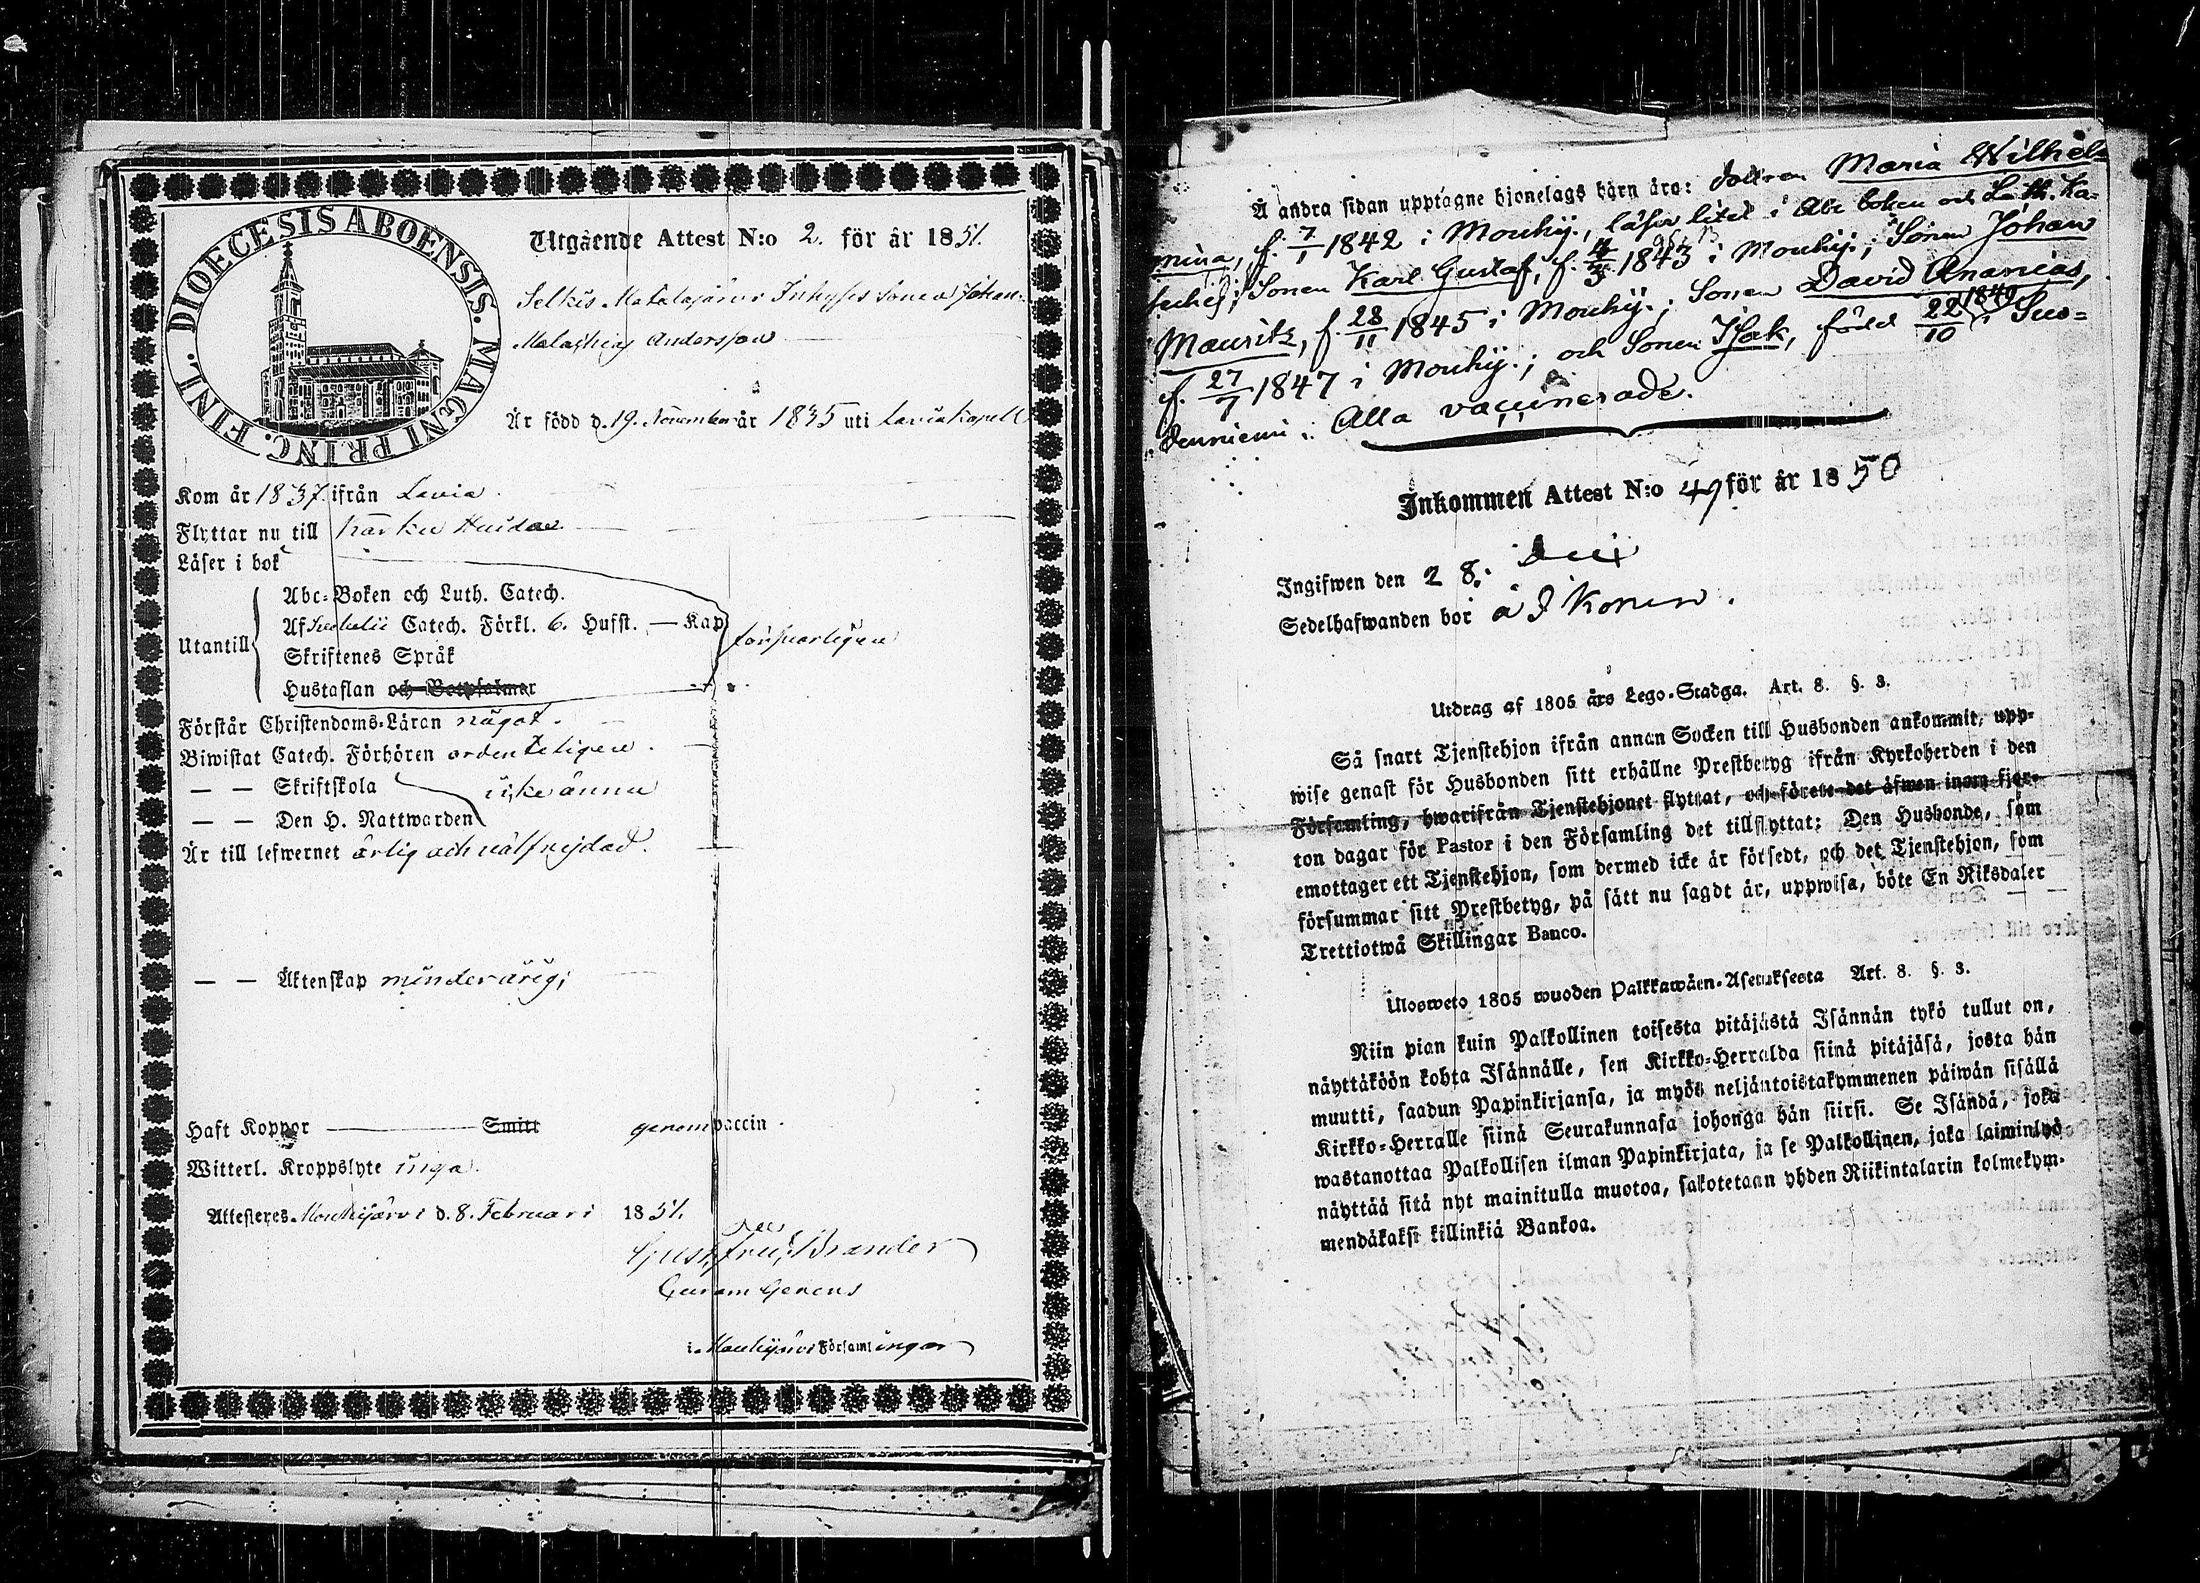 DIOECESIS ABOENSIS. MAGNI PRINC. FINL.
Utgående Attest N:o 2. för år 1851.
Selkis Matalajärvi Inhyses Sonen Johan
Malachias Andersson
Är född d. 19. November år 1835 uti Lavia Kapell
Kom år 1837. ifrån Lavia.
Flyttar nu till Karkku
Läser i bok
Abc-Boken och Luth. Catech.
Af Svebelii Catech. Förkl. 6. Hufst. — Kap
Utantill försvarligen
Skriftenes Språk
Hustaflan och Botpsalmer
Förstår Christendoms-Läran något.
Biwistat Catech. Förhören ordenteligen.
— — Skriftskola icke ännu
— — Den H. Nattwarden
Är till lefwernet ärlig och välfrejdad.
— — Äktenskap minderårig;
Haft Koppor — Smitt genom vaccin.
Witterl. Kroppslyte inga.
Attesteres Mouhijärvi d. 8. Februari 1851.
Brander
i Mouhijärvi Församlingar
Å andra sidan upptagne hjonelags barn äro: dottren Maria Wilhel-
mina, f. 7/1 1842 i Mouhij., läser litet i Abc boken och Luth. Ka-
teches; Sonen Karl Gustaf, f. 1843 i Mouhij.; Sonen Johan
Mauritz, f. 28/11 1845 i Mouhij.; Sonen David Ananias,
f. 27/7 1847 i Mouhij.; och Sonen Isak, född 22/10 1849 i Suo-
denniemi. Alla vaccinerade.
Inkommen Attest N:o 49 för år 1850
Ingifwen den 28.
Sedelhafwanden bor å Ikonen.
Utdrag af 1805 års Lego-Stadga. Art. 8. §. 3.
Så snart Tjenstehjon ifrån annan Socken till Husbonden ankommit, upp-
wise genast för Husbonden sitt erhållne Prestbetyg ifrån Kyrkoherden i den
Församling, hwarifrån Tjenstehjonet flyttat, och förete det äfwen inom fjor-
ton dagar för Pastor i den Församling det tillflyttat; Den Husbonde, som
emottager ett Tjenstehjon, som dermed icke är försedt, och det Tjenstehjon, som
försummar sitt Prestbetyg, på sätt nu sagdt är, uppwisa, böte En Riksdaler
Trettiotwå Skillingar Banco.
Ulosweto 1805 wuoden Palkkawäen-Asetuksesta Art. 8. §. 3.
Niin pian kuin Palkollinen toisesta pitäjästä Isännän tykö tullut on,
näyttäköön kohta Isännälle, sen Kirkko-Herralda siinä pitäjäsä, josta hän
muutti, saadun Papinkirjansa, ja myös neljäntoistakymmenen päiwän sisällä
Kirkko-Herralle siinä Seurakunnasa johonga hän siirsi. Se Isändä, joka
wastanottaa Palkollisen ilman Papinkirjata, ja se Palkollinen, joka laiminlyö
näyttää sitä nyt mainitulla muotoa, sakotetaan yhden Riikintalarin kolmekym-
mendäkaksi killinkiä Bankoa.